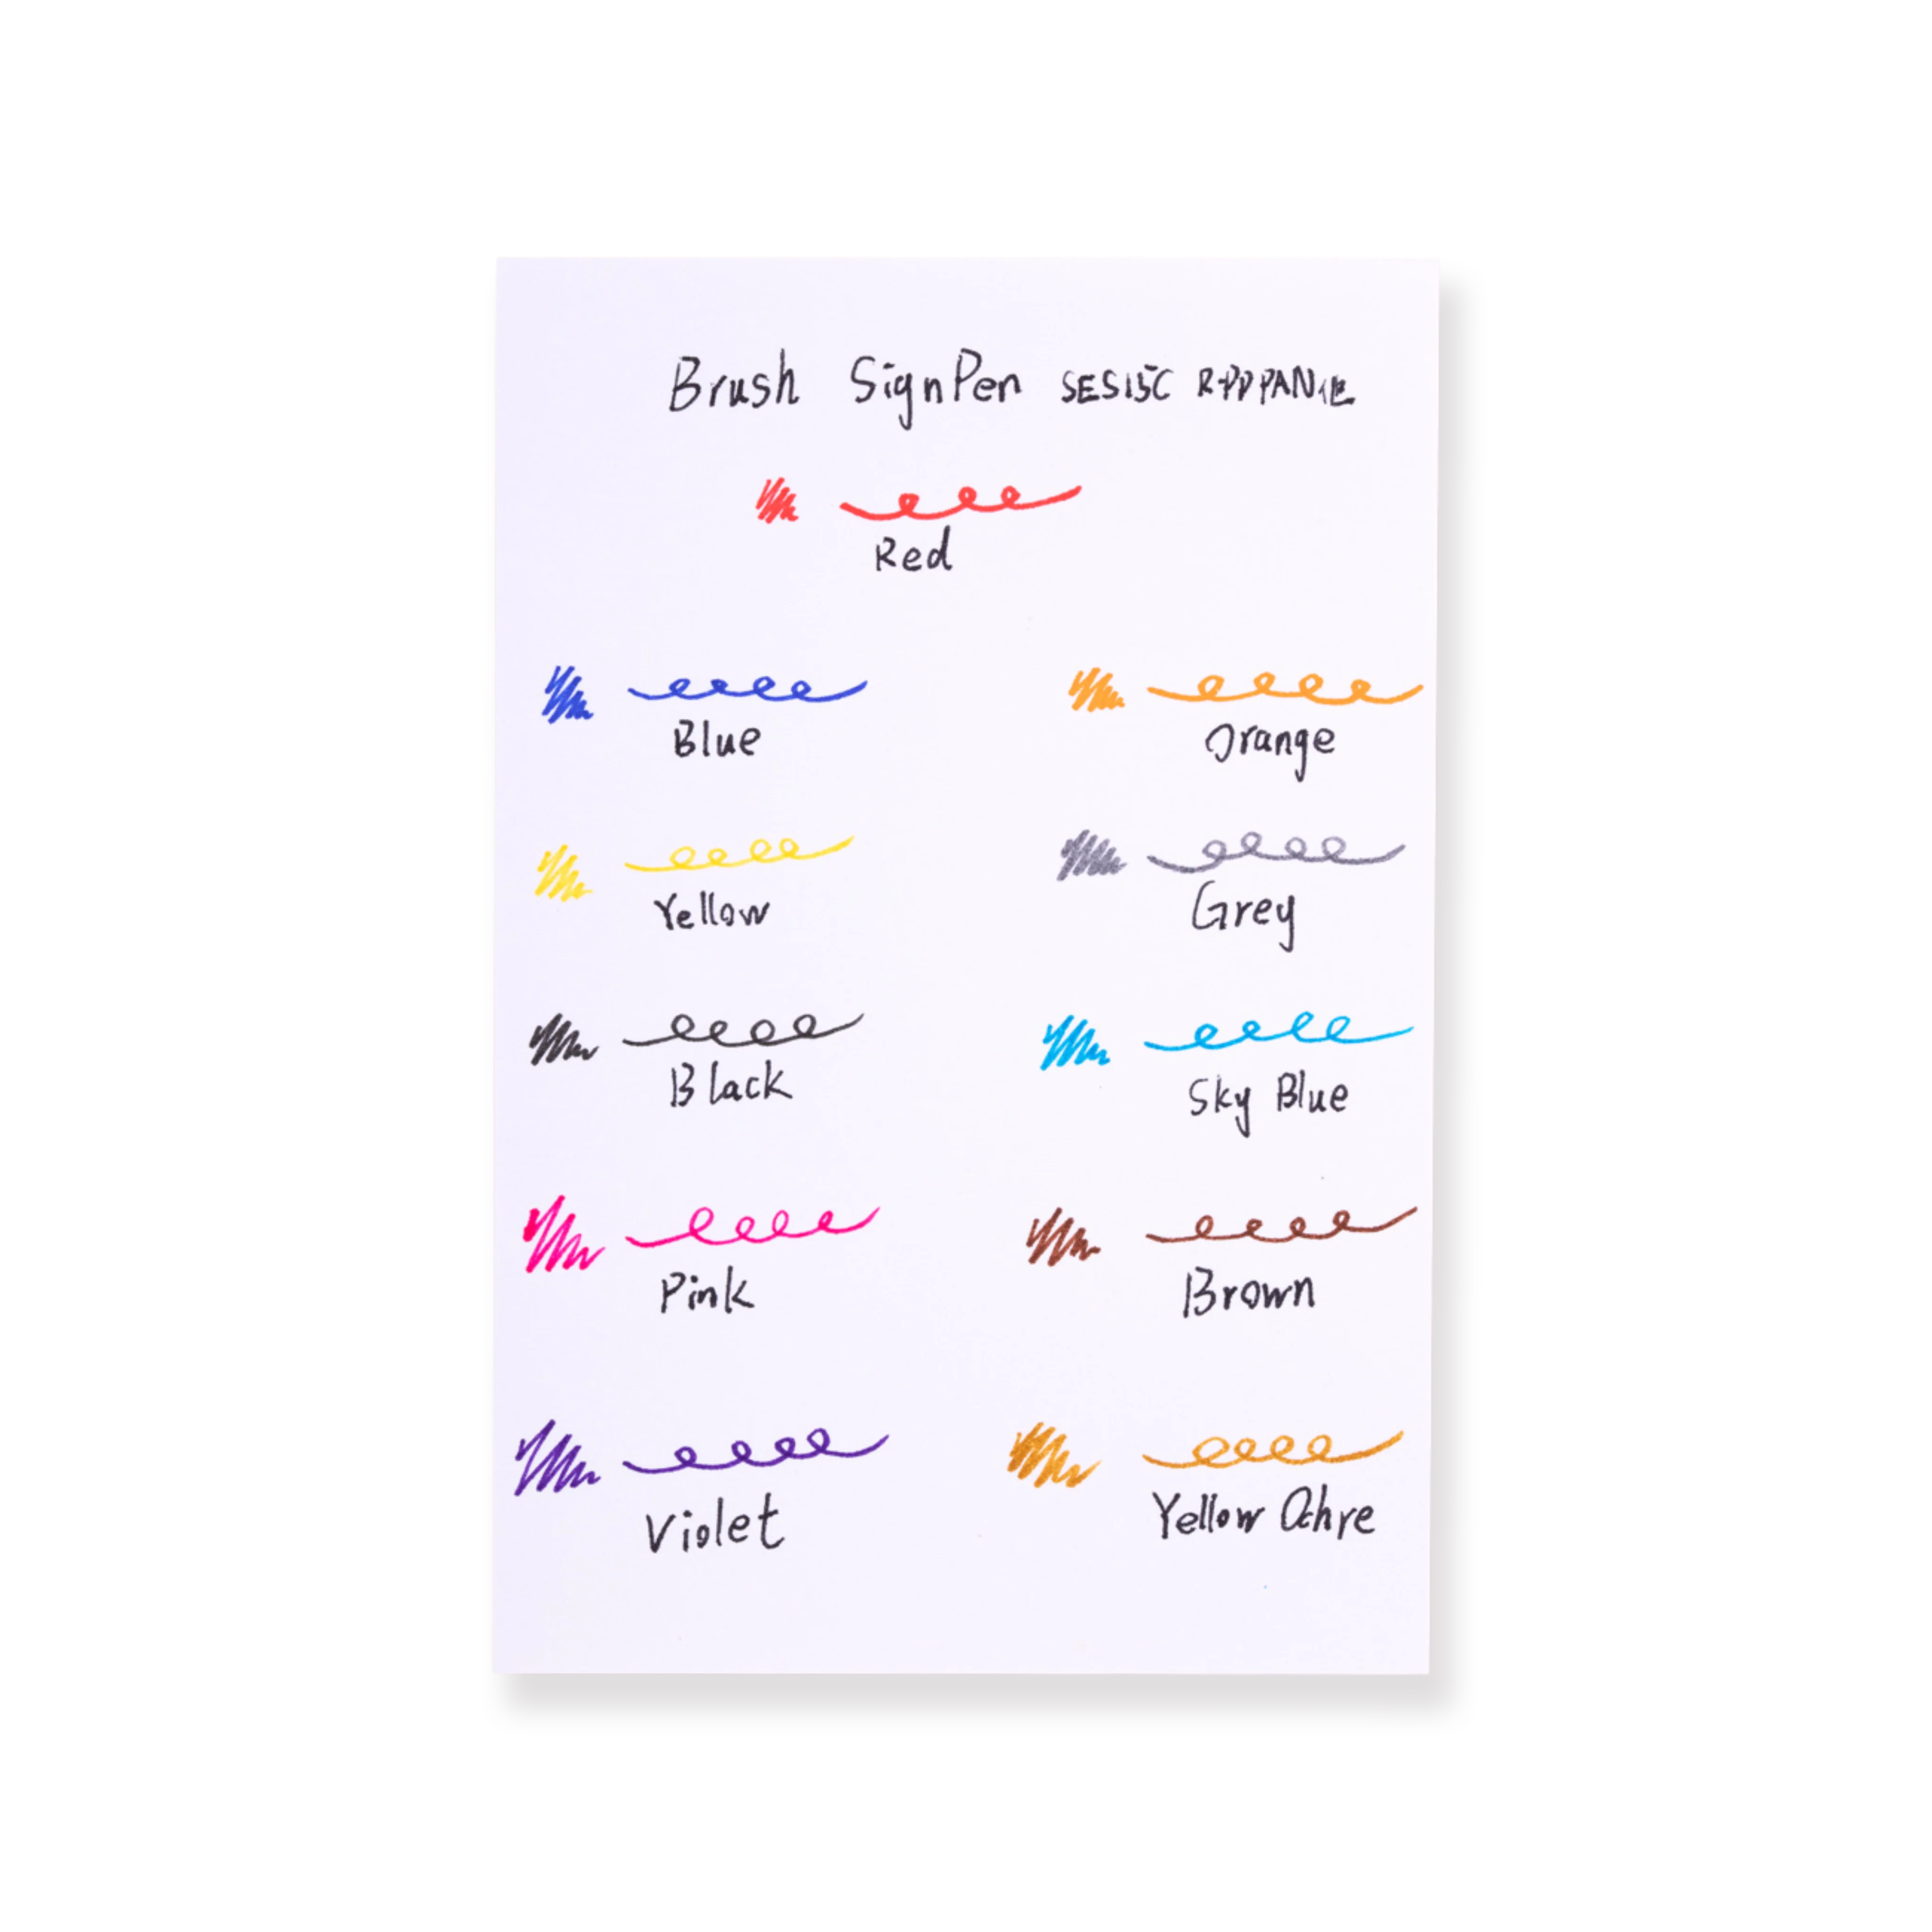 Brush SignPen SES15C
Red
Blue Orange
Yellow Grey
Black Sky Blue
Pink Brown
Violet Yellow Ochre